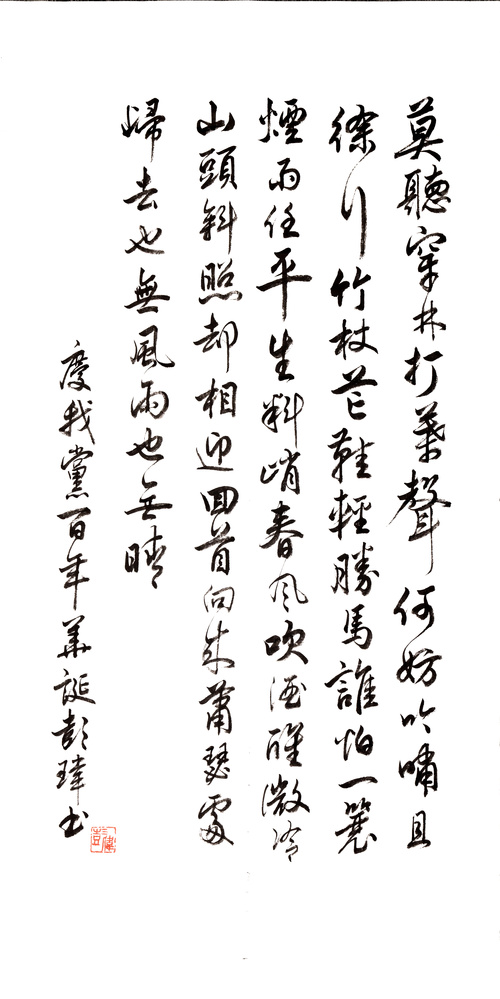 莫聽穿林打葉聲何妨吟嘯且
徐行竹杖芒鞋輕勝馬誰怕一蓑
煙雨任平生料峭春風吹酒醒微冷
山頭斜照却相迎回首向來蕭瑟處
歸去也無風雨也無晴
慶我黨百年華誕彭瑋书